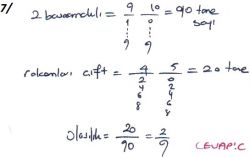 7/
2 basamaklı = 9 10 = 90 tane sayı
1 0
9 9
rakamları çift = 4 5 = 20 tane
2 0
4 2
6 4
8 6
8
Olasılık = 20/90 = 2/9
CEVAP: C